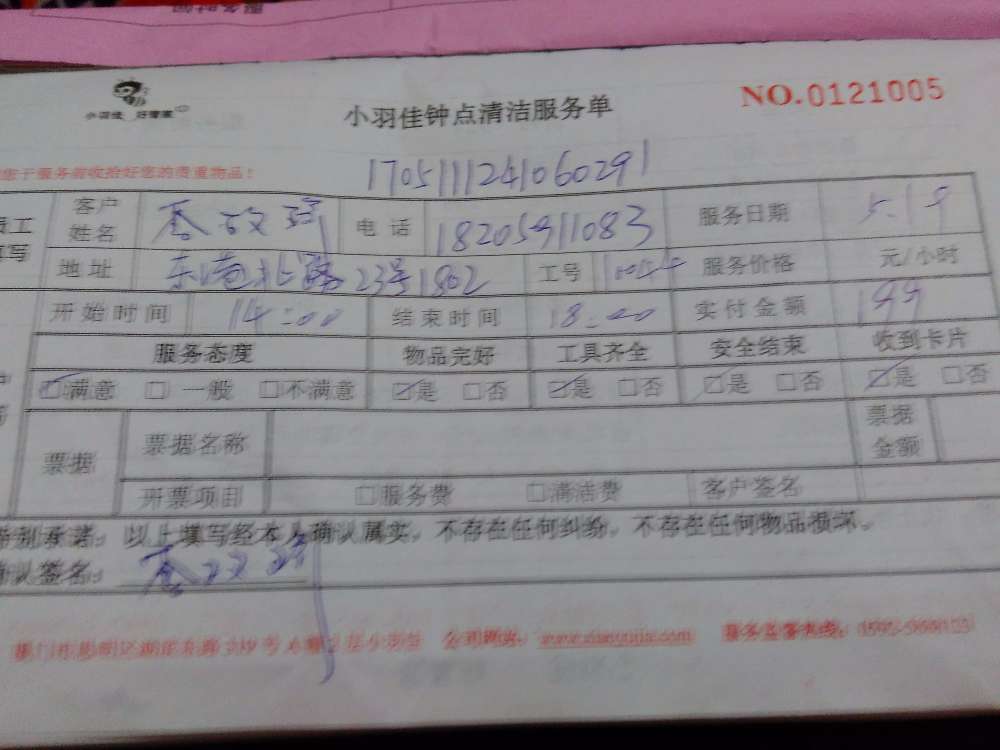 小羽佳 好管家
小羽佳钟点清洁服务单
NO.0121005
于服务前收拾好您的贵重物品！
1705111241060291
客户姓名 电话 18205911083 服务日期 5.19
地址 东港北路23号1802 工号 服务价格 元/小时
开始时间 14:00 结束时间 18:00 实付金额 199
服务态度 物品完好 工具齐全 安全结束 收到卡片
☑满意 □一般 □不满意 ☑是 □否 ☑是 □否 ☑是 □否 ☑是 □否
票据 票据名称 票据金额
开票项目 □服务费 □清洁费 客户签名
特别承诺：以上填写经本人确认属实，不存在任何纠纷，不存在任何物品损坏。
确认签名：
公司网址：www.xiaoyujia.com 服务监督热线：